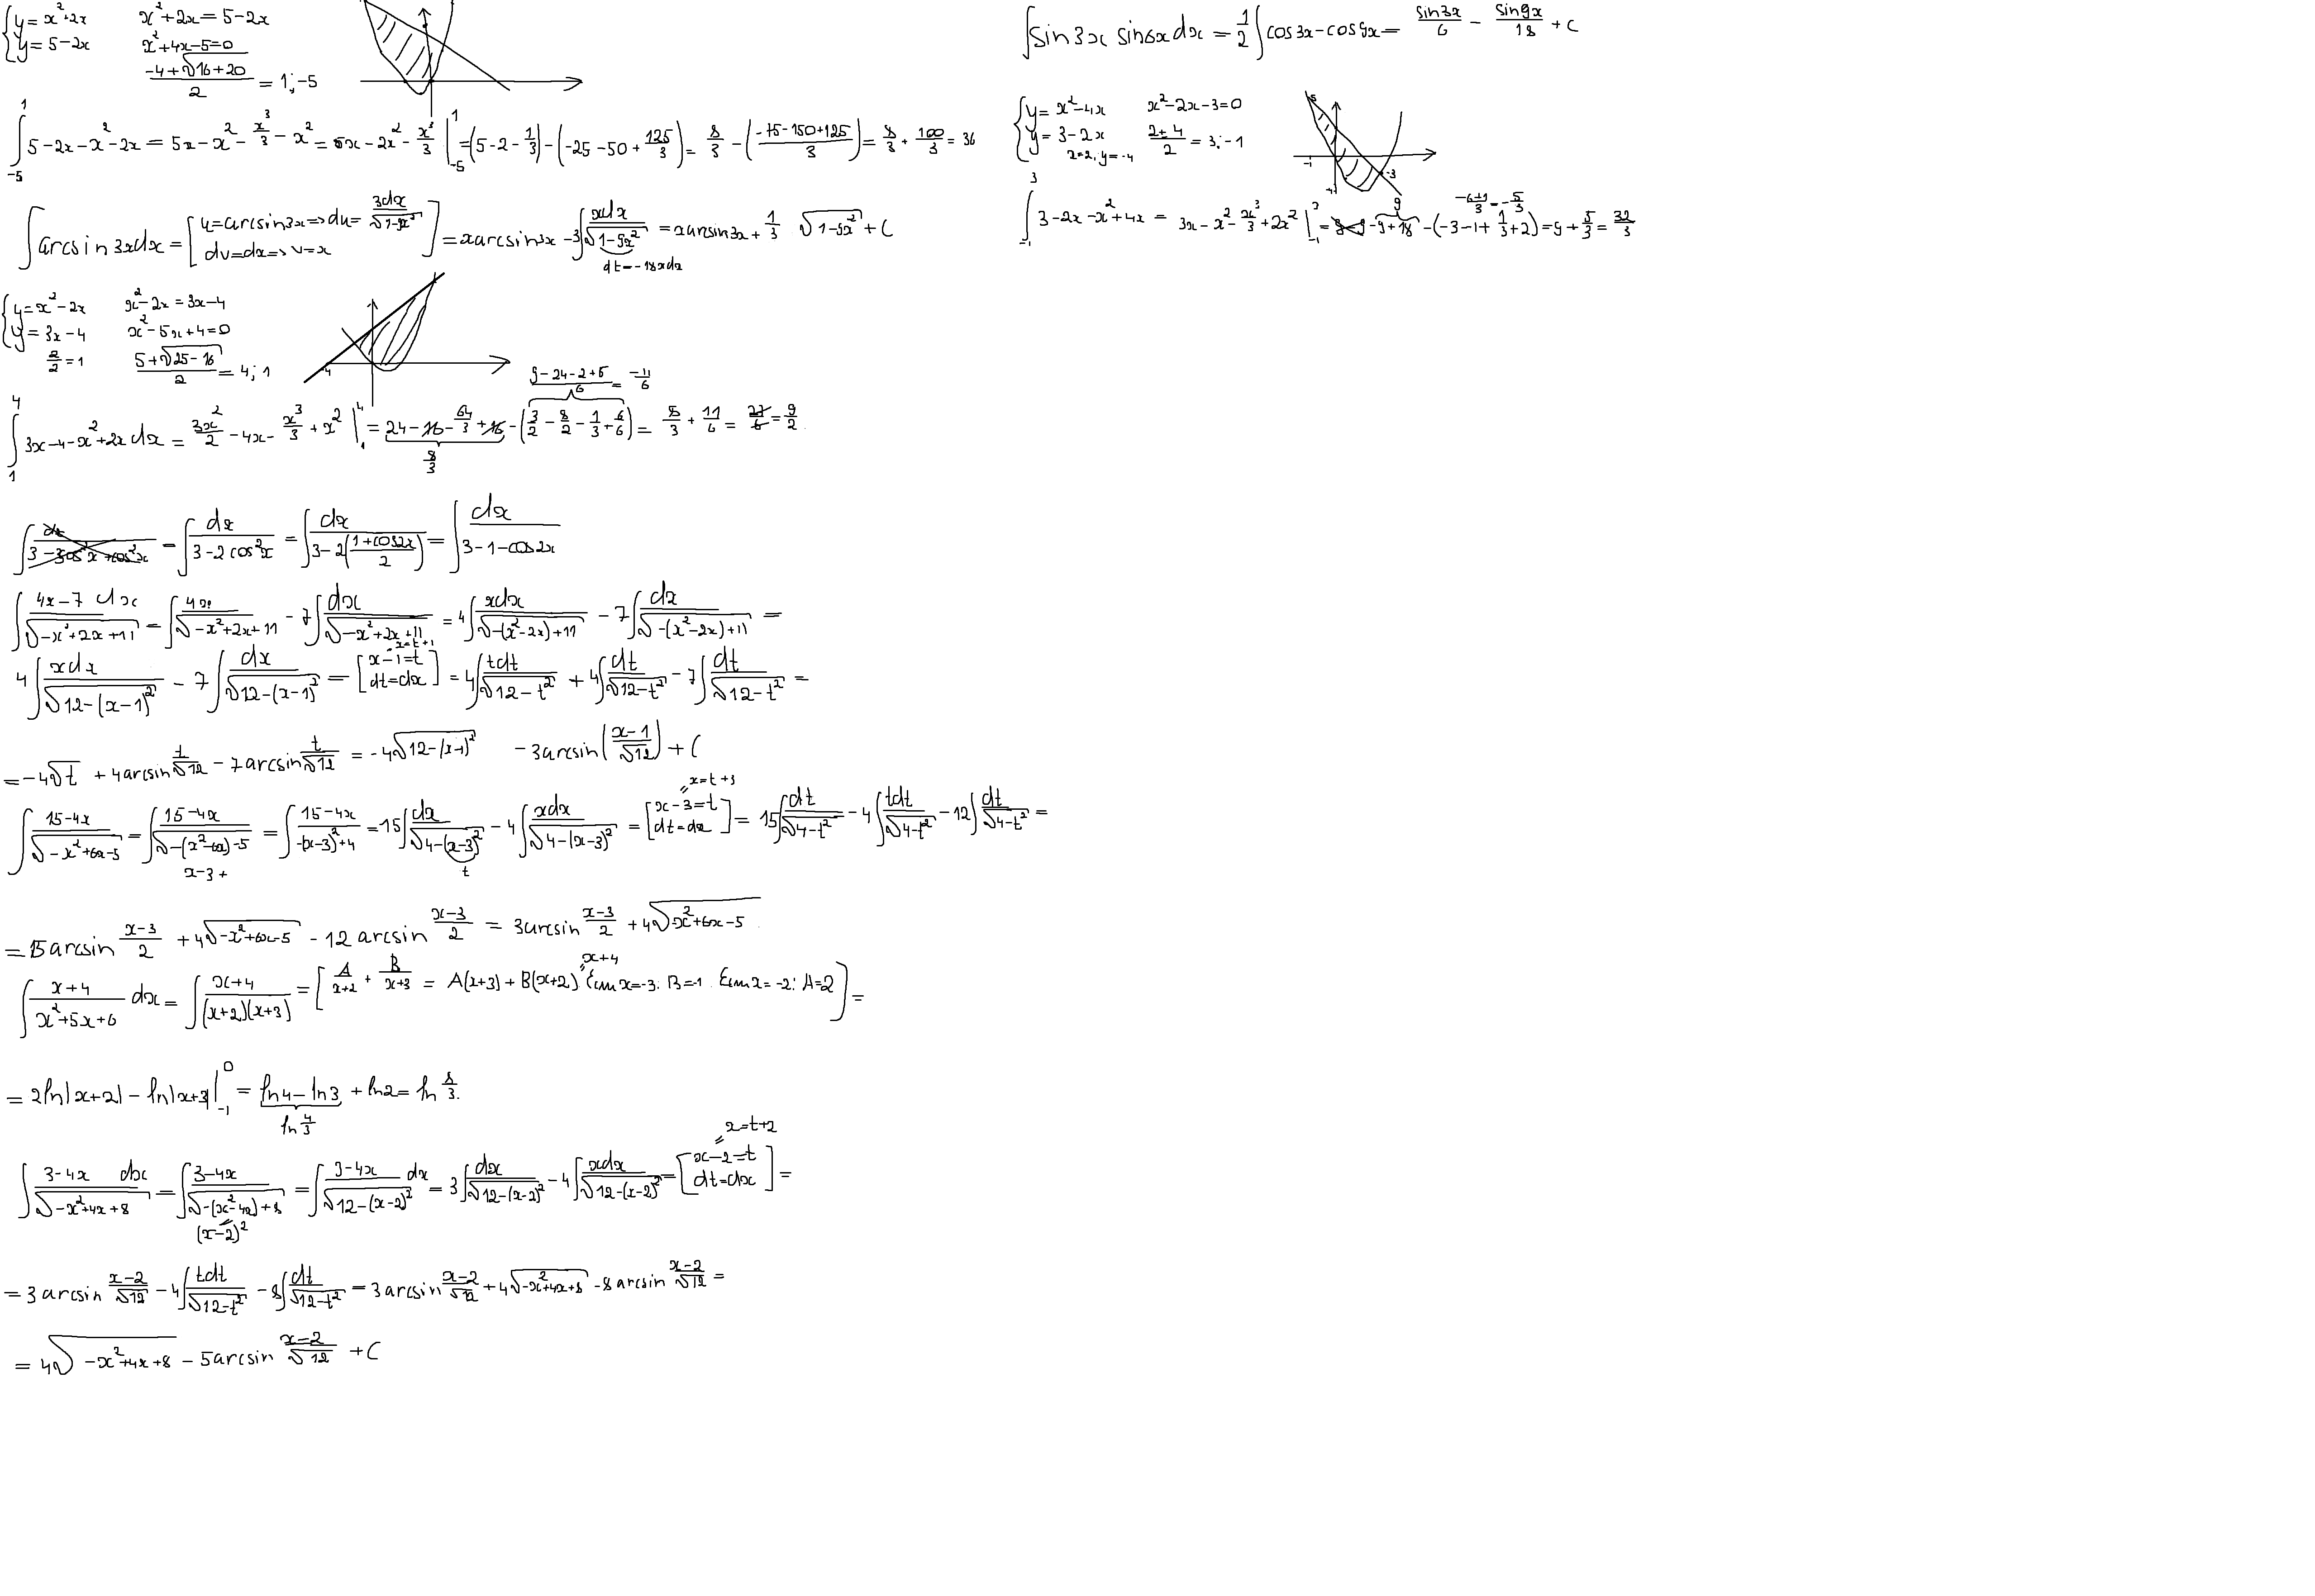 { y = x²+2x   x²+2x = 5-2x
y = 5-2x   x²+4x-5=0
(-4+√(16+20))/2 = 1; -5
∫_{-5}^{1} 5-2x-x²-2x = 5x-x²-x³/3-x² = 5x-2x²-x³/3 |_{-5}^{1} = (5-2-1/3)-(-25-50+125/3) = 8/3 - ((-75-150+125)/3) = 8/3 + 100/3 = 36
∫ arcsin3xdx = [u=arcsin3x=>du= 3dx/√(1-9x²)   dv=dx=>v=x] = xarcsin3x - 3∫ xdx/√(1-9x²) = xarcsin3x + 1/3 √(1-9x²) + C
dt=-18xdx
{ y=x²-2x   x²-2x=3x-4
y=3x-4   x²-5x+4=0
2/2=1   (5+√(25-16))/2 = 4; 1
-4
(9-24-2+6)/6 = -11/6
∫_{1}^{4} 3x-4-x²+2x dx = 3x²/2 -4x- x³/3 + x² |_{1}^{4} = 24-16-64/3+16 - (3/2 - 8/2 - 1/3 + 6/6) = 8/3 + 11/6 = 27/6 = 9/2
8/3
∫ dx/(3-2cos²x) = ∫ dx/(3-2((1+cos2x)/2)) = ∫ dx/(3-1-cos2x)
∫ (4x-7 dx)/√(-x²+2x+11) = ∫ 4x/√(-x²+2x+11) - 7∫ dx/√(-x²+2x+11) = 4∫ xdx/√(-(x²-2x)+11) - 7∫ dx/√(-(x²-2x)+11) =
4∫ xdx/√(12-(x-1)²) - 7∫ dx/√(12-(x-1)²) = [x-1=t   x=t+1   dt=dx] = 4∫ tdt/√(12-t²) + 4∫ dt/√(12-t²) - 7∫ dt/√(12-t²) =
= -4√t + 4arcsin t/√12 - 7arcsin t/√12 = -4√(12-(x-1)²) - 3arcsin((x-1)/√12) + C
∫ (15-4x)/√(-x²+6x-5) = ∫ (15-4x)/√(-(x²-6x)-5) = ∫ (15-4x)/(-(x-3)²+4) = 15∫ dx/√(4-(x-3)²) - 4∫ xdx/√(4-(x-3)²) = [x-3=t   x=t+3   dt=dx] = 15∫ dt/√(4-t²) - 4∫ tdt/√(4-t²) - 12∫ dt/√(4-t²) =
x-3+   t
= 15arcsin (x-3)/2 + 4√(-x²+6x-5) - 12 arcsin (x-3)/2 = 3arcsin (x-3)/2 + 4√(-x²+6x-5)
x+4
∫ (x+4)/(x²+5x+6) dx = ∫ (x+4)/((x+2)(x+3)) = [A/(x+2) + B/(x+3) = A(x+3)+B(x+2) Если x=-3: B=-1. Если x=-2: A=2] =
= 2ln|x+2| - ln|x+3| |_{-1}^{0} = ln4-ln3 + ln2 = ln 8/3.
ln 4/3
x=t+2
∫ (3-4x dx)/√(-x²+4x+8) = ∫ (3-4x)/√(-(x²-4x)+8) = ∫ (3-4x)/√(12-(x-2)²) dx = 3∫ dx/√(12-(x-2)²) - 4∫ xdx/√(12-(x-2)²) = [x-2=t   dt=dx] =
(x-2)²
= 3 arcsin (x-2)/√12 - 4∫ tdt/√(12-t²) - 8∫ dt/√(12-t²) = 3arcsin (x-2)/√12 + 4√(-x²+4x+8) - 8arcsin (x-2)/√12 =
= 4√(-x²+4x+8) - 5arcsin (x-2)/√12 + C
∫ sin3x sin6x dx = 1/2 ∫ cos3x-cos9x = sin3x/6 - sin9x/18 + C
{ y= x²-4x   x²-2x-3=0
y= 3-2x   (2+4)/2 = 3; -1
x=2, y=-4
5
-1   -3
-4
(-6+1)/3 = -5/3
∫_{-1}^{3} 3-2x-x²+4x = 3x-x²-x³/3+2x² |_{-1}^{3} = 9-9-9+18 - (-3-1+1/3+2) = 9 + 5/3 = 32/3
9